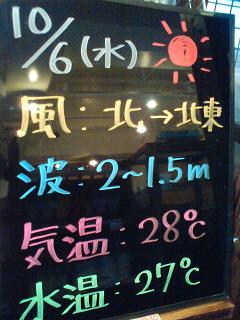 10/6(水)
風:北→北東
波:2~1.5m
気温:28℃
水温:27℃